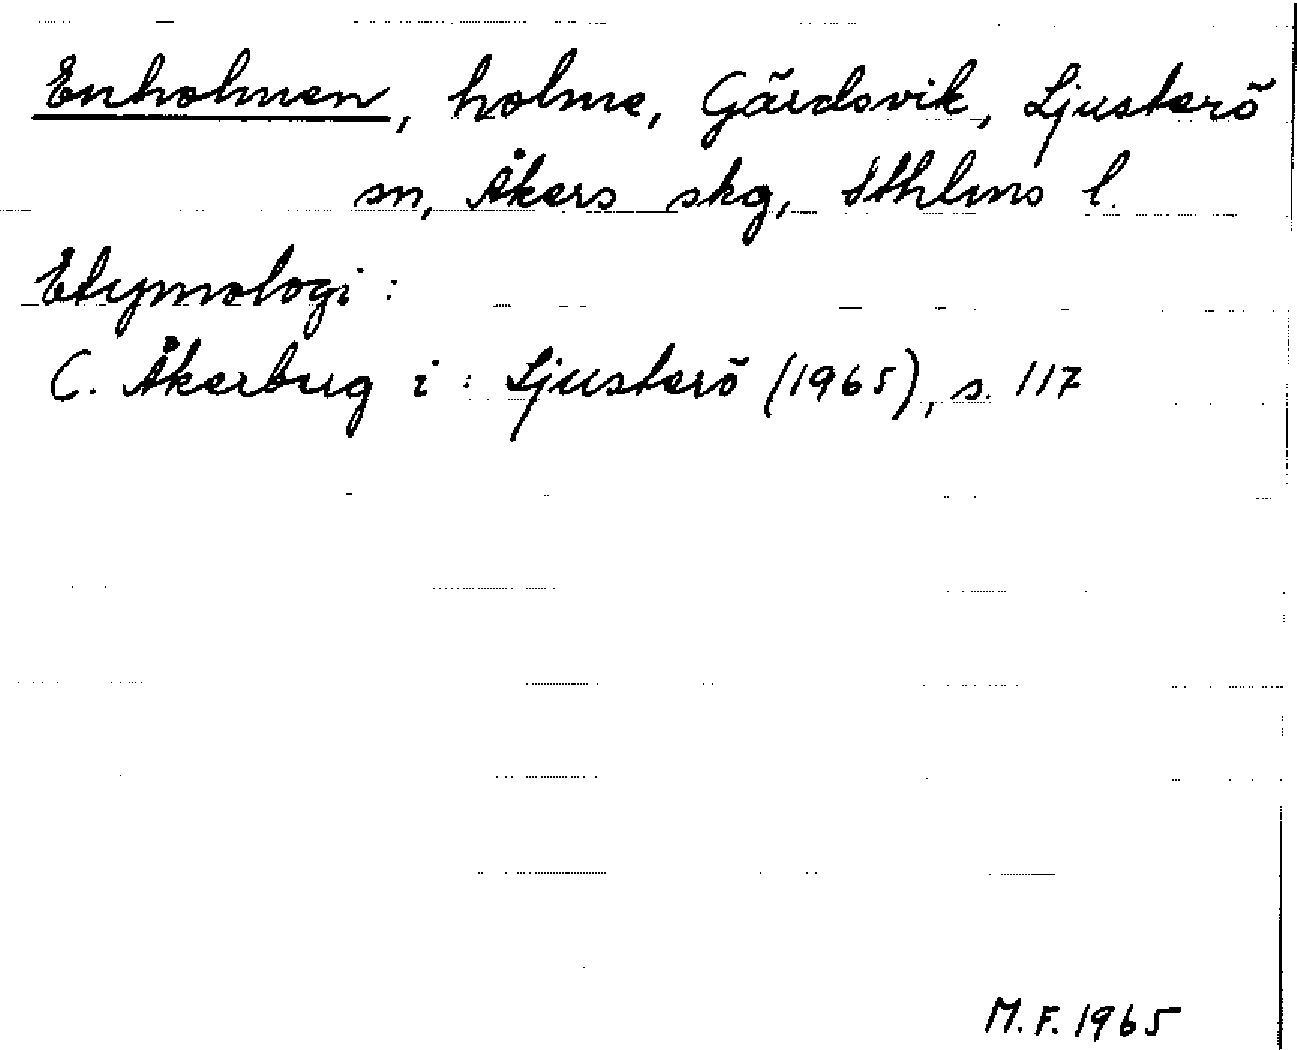 Enholmen, holme, Gärdsvik, Ljusterö
sn, Åkers skg, Sthlms l.
Etymologi :
C. Åkerburg i : Ljusterö (1965), s. 117
M.F. 1965